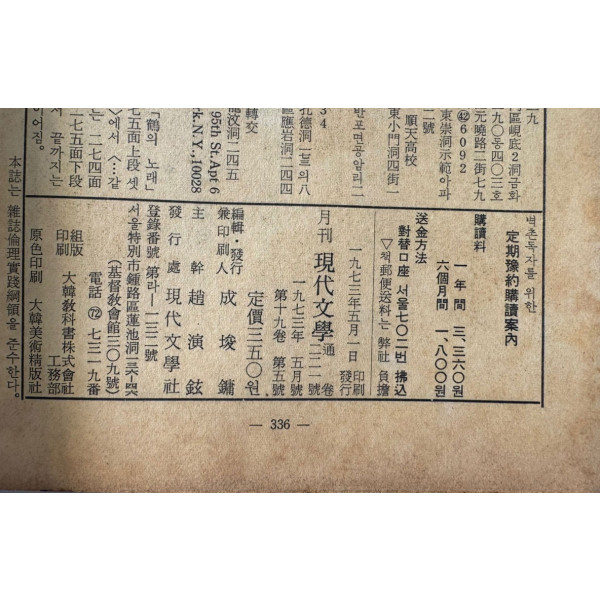 九
門區峴底2洞금화
九〇동四〇三호
元曉路二街七九
㊷6092
東崇洞示範아파
二號
順天高校
東小門洞四街一
반포면공알리二
34
孔德洞二三의八
區應岩洞二四四
轉交
汶洞二四五
95th St. Apt 6
rk. N.Y., 10028
「鶴의 노래」
七五面上段 셋
〉에서 〈…같
는 二七四面
二七五面下段
서 끝까지는
이어짐.
벽촌독자를 위한
定期豫約購讀案內
購讀料
一年間 三、三六〇원
六個月間 一、八〇〇원
送金方法
對替口座 서울七〇二번 拂込
▽책郵便送料는 弊社 負擔
一九七三年五月一日 印刷 發行
月刊 現代文學 通卷
一九七三年 五月號
第十九卷 第五號
定價三五〇원
編輯・發行 兼印刷人 成埈鏞
主幹 趙演鉉
發行處 現代文學社
登錄番號 第라—一三二號
서울特別市鍾路區蓮池洞
(基督敎會館三〇九號)
電話 ㊆ 七三一九番
組版 印刷 大韓敎科書株式會社 工務部
原色印刷 大韓美術精版社
本誌는 雜誌倫理實踐綱領을 준수한다.
— 336 —